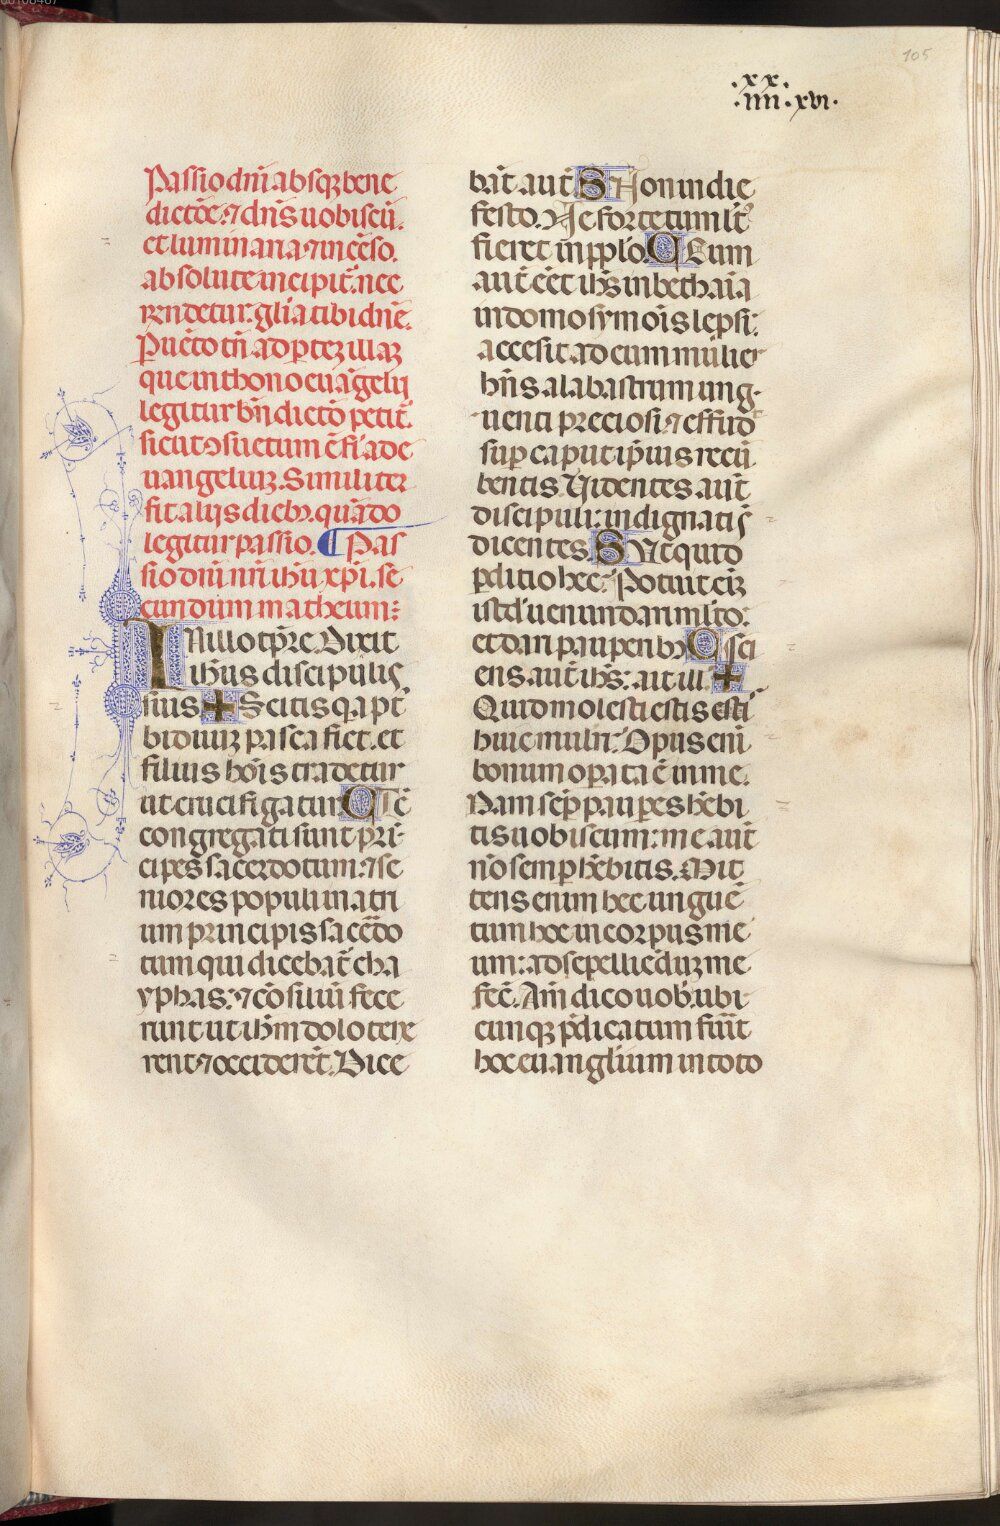 105
.xx.
.iiii.xvi.
Passio dñi absqz bene
dictõe.⁊ dñs uobiscũ.
et luminaria ⁊ incẽso.
absolute incipit̃. nec
rendetur: glĩa tibi dñe.
Puẽto tñ ad ꝑtez illaz
que in thono euãgelij
legitur bñdictõ petit̃.
sicut ɔsuetum ẽ fi ad e
uangeliuz. Similiter
fit alijs diebz. quãdo
legitur passio. ¶ Pas
sio dñi nr̃i ihũ xp̃i. se
cundum matheum:
IN illo tp̃re. Dixit
ihũs discipulis
suis + Scitis qꝛ apt̃
biduuz pasca fiet. et
filius hõis tradetur
ut crucifigatur C Tc̃
congregati sunt pri̾
cipes sacerdotum: ⁊ se
niores populi in atri
um principis sacẽdo
tum qui dicebat̃ cha
yphas: ⁊ cõsiliũ fece
runt ut ihm̃ dolo tene
rent ⁊ occiderẽt. Dice
bãt aut̃ S Non in die
festo. Ne forte tumlt̃
fieret in pplo. C Cum
aut̃ eẽt ihs̃ in bethaĩa
in domo symõis lepsi:
accesit ad eum mulier
hñs alabastrum ung
uenti preciosi ⁊ effud̾
suꝑ caput ip̃ius recũ
bentis. Uidentes aut̃
discipuli: indignati s̃
dicentes. S Ut quid
ꝑditio hec: Potuit eĩz
istd̾ uenundari mlto:
et dari pauperibz C Sci
ens aut̃ ihs̃: ait illi +
Quid molesti estis esti
huic mulri: Opus enĩ
bonum oꝑata ẽ in me.
Nam semꝑ pauꝑes hẽbi
tis uobiscum: me aut̃
nõ semꝑ hẽbitis. Mit
tens enim hec unguẽ
tum hoc in corpus me
um: ad sepelliẽduz me
fec̃. Am̃ dico uob̾. ubi
cunqz p̃dicatum fuĩt
hoc euanglium in toto